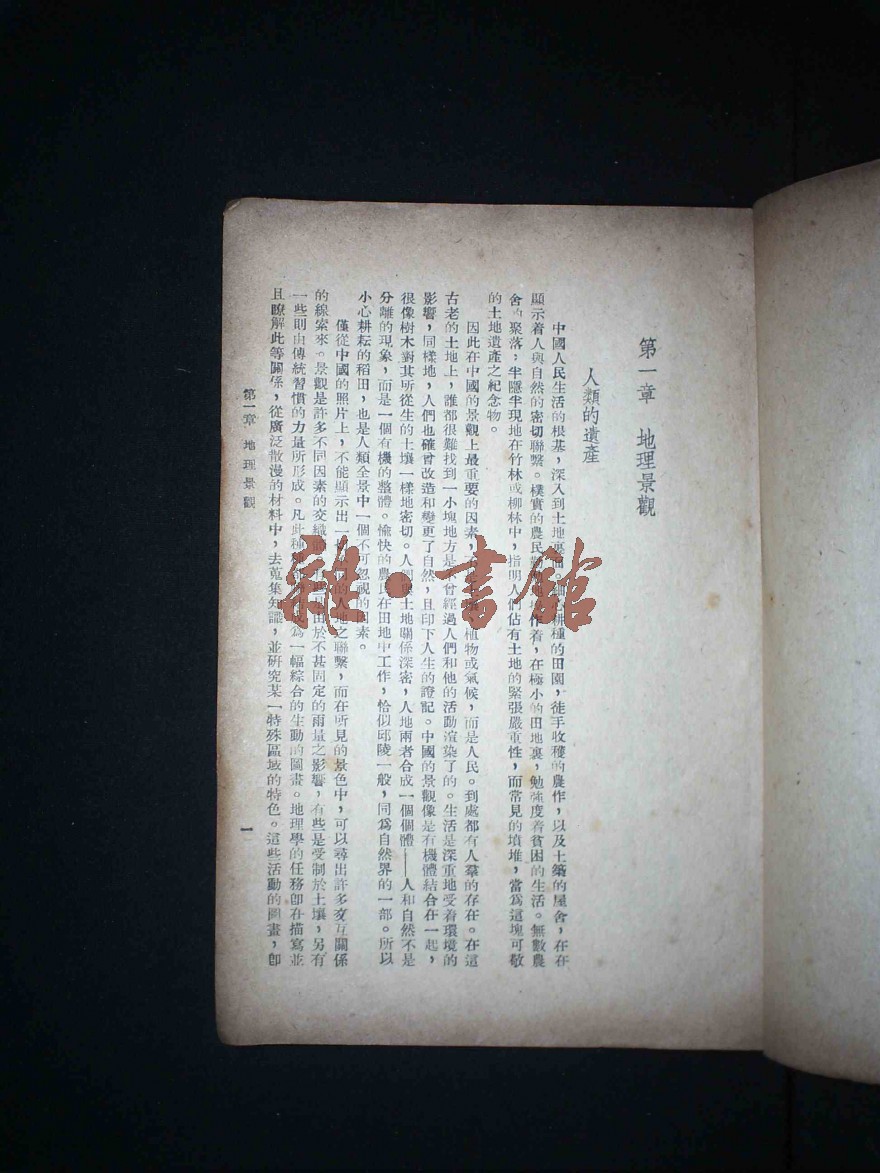 第一章 地理景觀
人類的遺產
中國人民生活的根基，深入到土地裏面，耕種的田園，徒手收穫的農作，以及土築的屋舍，在在
顯示着人與自然的密切聯繫。樸實的農民 作着，在極小的田地裏，勉強度着貧困的生活。無數農
舍的聚落，半隱半現地在竹林或柳林中，指明人們佔有土地的緊張嚴重性，而常見的墳堆，當爲這塊可敬
的土地遺產之紀念物。
因此在中國的景觀上最重要的因素， 植物或氣候，而是人民。到處都有人羣的存在。在這
古老的土地上，誰都很難找到一小塊地方是不曾經過人們和他的活動渲染了的。生活是深重地受着環境的
影響，同樣地，人們也確曾改造和變更了自然，且印下人生的證記。中國的景觀像是有機體結合在一起，
很像樹木對其所從生的土壤一樣地密切。人們與土地關係深密，人地兩者合成一個個體——人和自然不是
分離的現象，而是一個有機的整體。愉快的農民在田地中工作，恰似邱陵一般，同爲自然界的一部。所以
小心耕耘的稻田，也是人類全景中一個不可忽視的因素。
僅從中國的照片上，不能顯示出一 的人地之聯繫，而在所見的景色中，可以尋出許多交互關係
的線索來。景觀是許多不同因素的交織 由於不甚固定的雨量之影響，有些是受制於土壤，另有
一些則由傳統習慣的力量所形成。凡此種 成爲一幅綜合的生動的圖畫。地理學的任務卽在描寫並
且瞭解此等關係，從廣泛散漫的材料中，去蒐集知識，並研究某一特殊區域的特色。這些活動的圖畫，卽
第一章 地理景觀
一
雜·書館